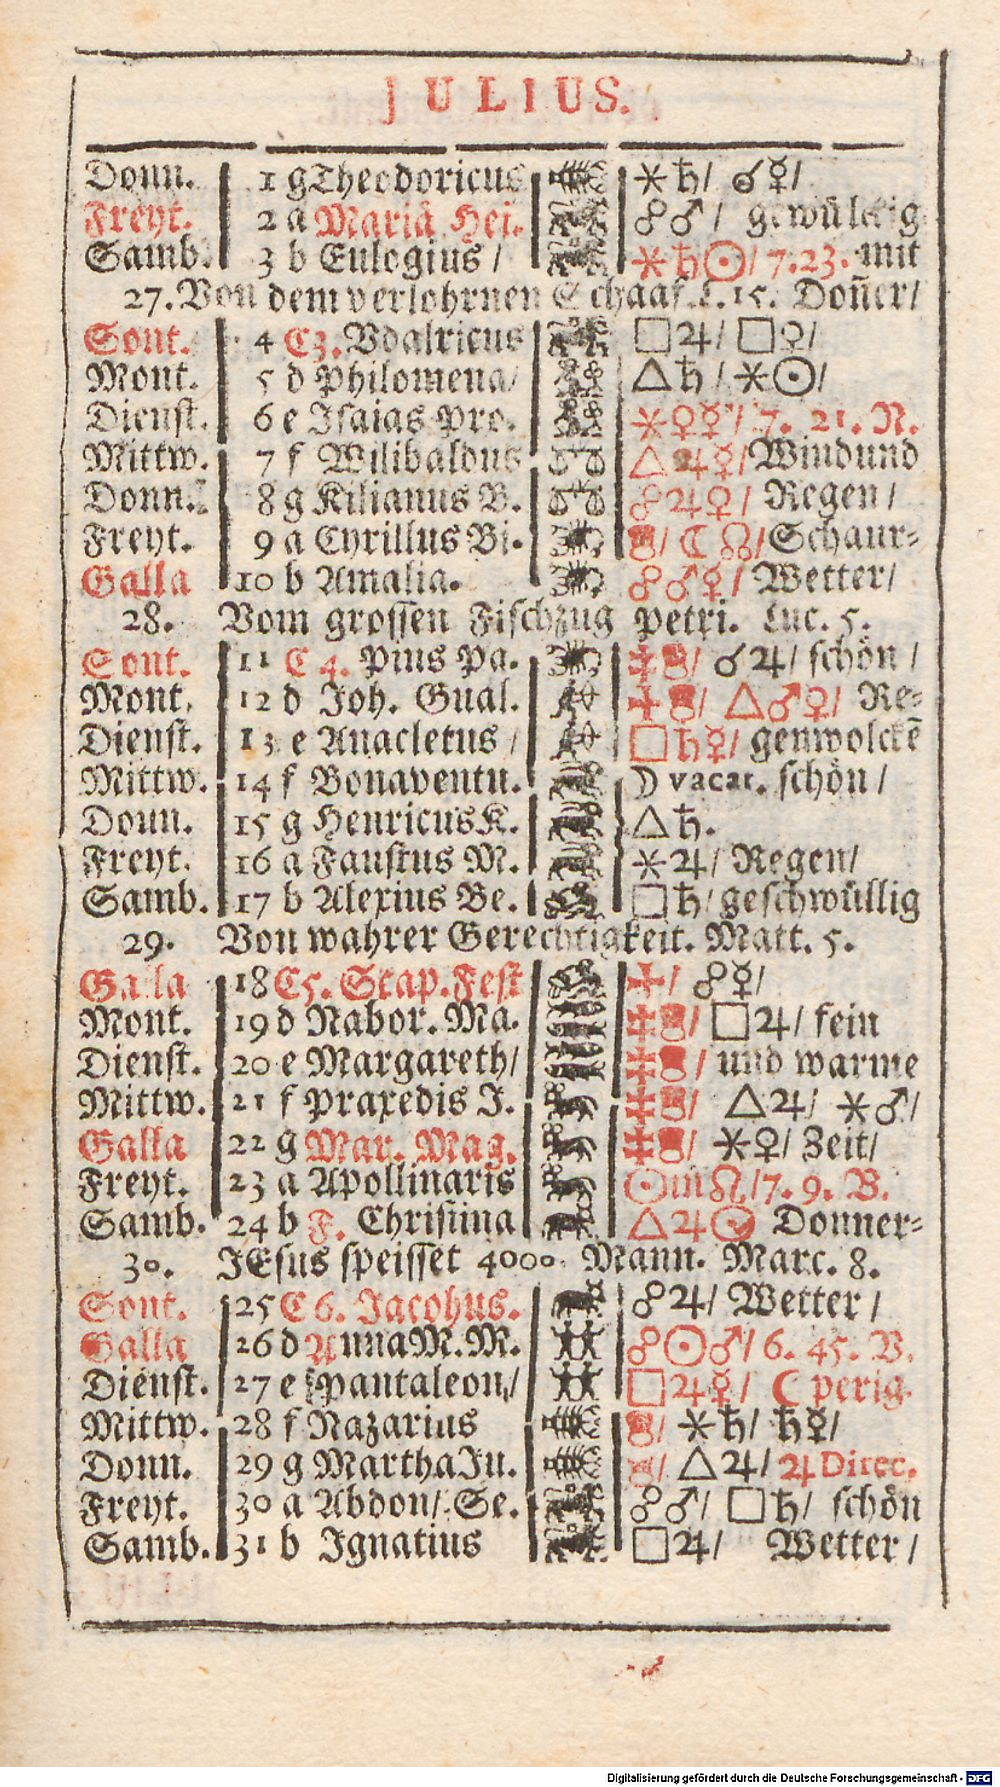 JULIUS.
Donn. 1 g Theodoricus ⚹♄/ ☌☿/
Freyt. 2 a Mariä Hei. ☍♂/ gewülckig
Samb. 3 b Eulogius / ⚹♄☉/ 7.23. mit
27. Von dem verlohrnen Schaaf. L. 15. Doñer/
Sont. 4 C3. Vdalricus □♃/ □♀/
Mont. 5 d Philomena/ △♄/ ⚹☉/
Dienst. 6 e Isaias Pro. ⚹♀☿/ 7. 21. N.
Mittw. 7 f Wilibaldus △♃☿/ Wind und
Donn. 8 g Kilianus B. ☍♃♀/ Regen /
Freyt. 9 a Cyrillus Bi. / ☾☊/ Schaur-
Galla 10 b Amalia. ☍♂♀/ Wetter/
28. Vom grossen Fischzug Petri. Luc. 5.
Sont. 11 C 4. Pius Pa. / ☌♃/ schön /
Mont. 12 d Joh. Gual. / △♂♀/ Re-
Dienst. 13 e Anacletus / □♄☿/ genwolckē
Mittw. 14 f Bonaventu. ☽ vacat. schön /
Donn. 15 g Henricus K. △♄.
Freyt. 16 a Faustus M. ⚹♃/ Regen/
Samb. 17 b Alexius Be. □♄/ geschwüllig
29. Von wahrer Gerechtigkeit. Matt. 5.
Galla 18 C5. Scap. Fest / ☍☿/
Mont. 19 d Nabor. Ma. / □♃/ fein
Dienst. 20 e Margareth/ / und warme
Mittw. 21 f Praxedis J. / △♃/ ⚹♂/
Galla 22 g Mar. Mag. / ⚹♀/ Zeit/
Freyt. 23 a Apollinaris ☉ in ♌/ 7. 9. V.
Samb. 24 b F. Christina △♃ Donner-
30. JEsus speisset 4000. Mann. Marc. 8.
Sont. 25 C 6. Jacobus. ☍♃/ Wetter /
Galla 26 d Anna M. M. ☍☉♂/ 6. 45. V.
Dienst. 27 e Pantaleon/ □♃☿/ ☾ perig.
Mittw. 28 f Nazarius / ⚹♄/ ♄☿/
Donn. 29 g Martha Ju. / △♃/ ♃ Direc.
Freyt. 30 a Abdon/ Se. ☍♂/ □♄/ schön
Samb. 31 b Ignatius □♃/ Wetter /
Digitalisierung gefördert durch die Deutsche Forschungsgemeinschaft - DFG